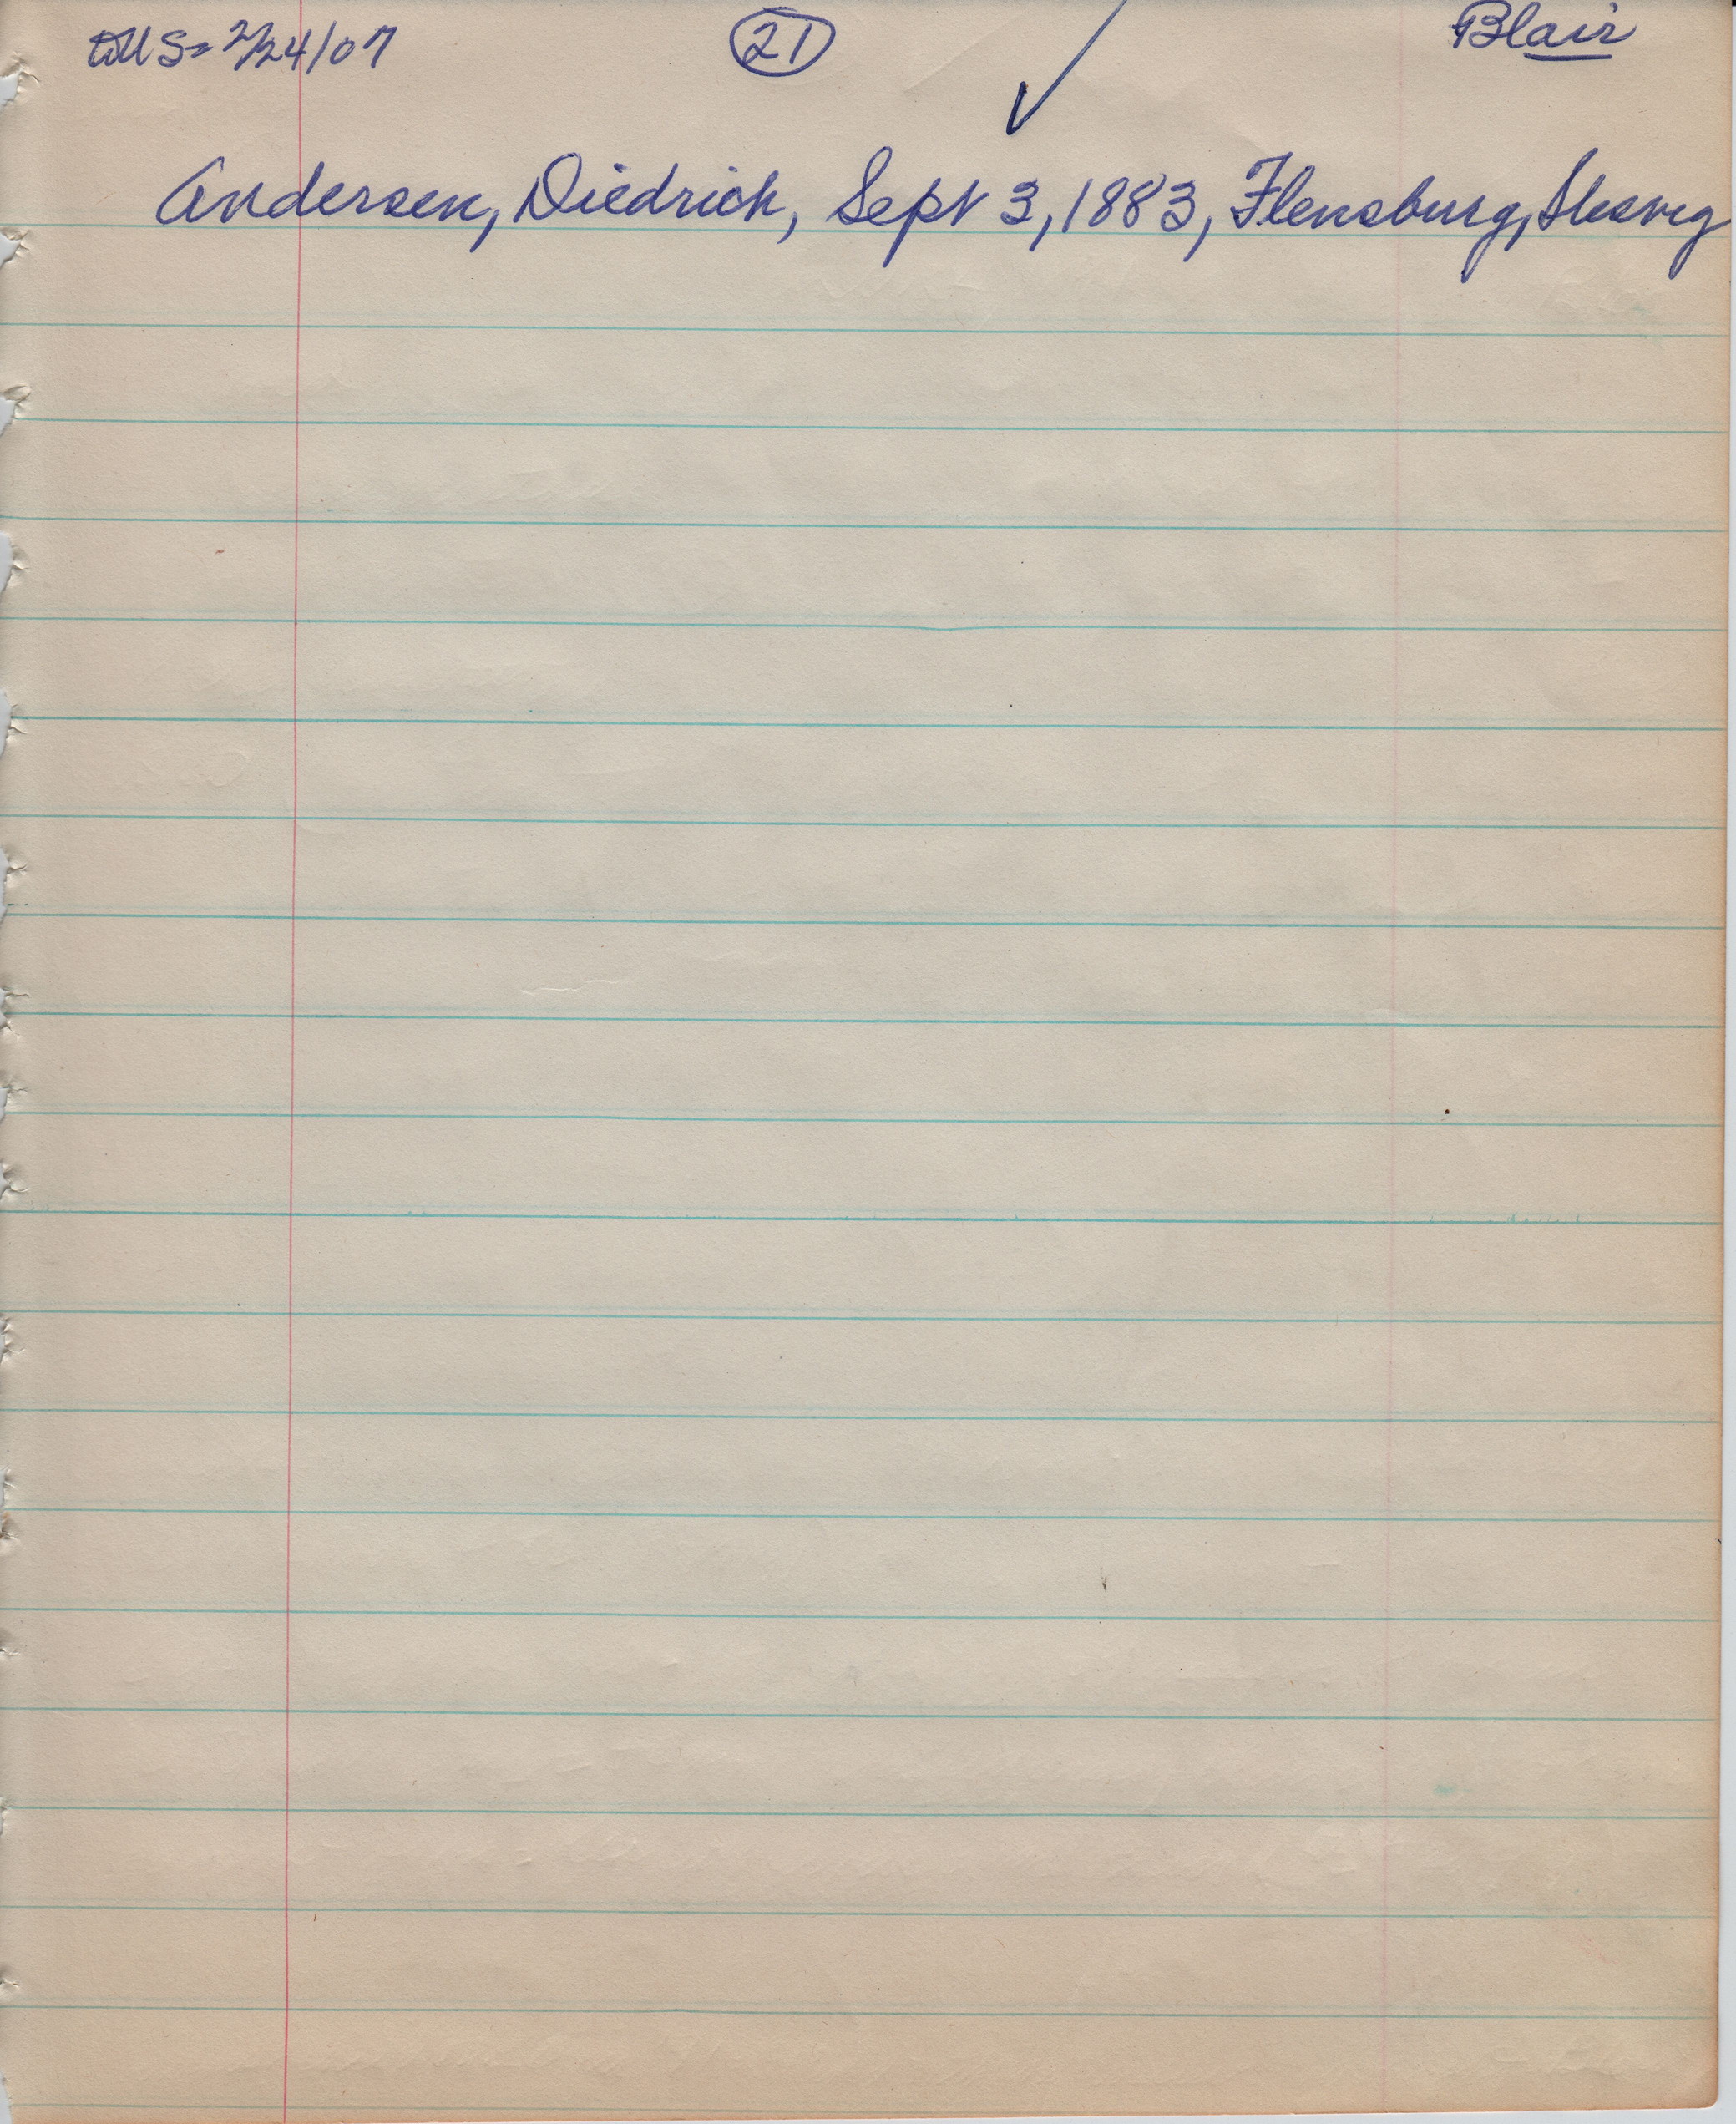 WMS= 2/24/07 (21) ✓ Blair
Andersen, Diedrich, Sept 3, 1883, Flensburg, Slesvig